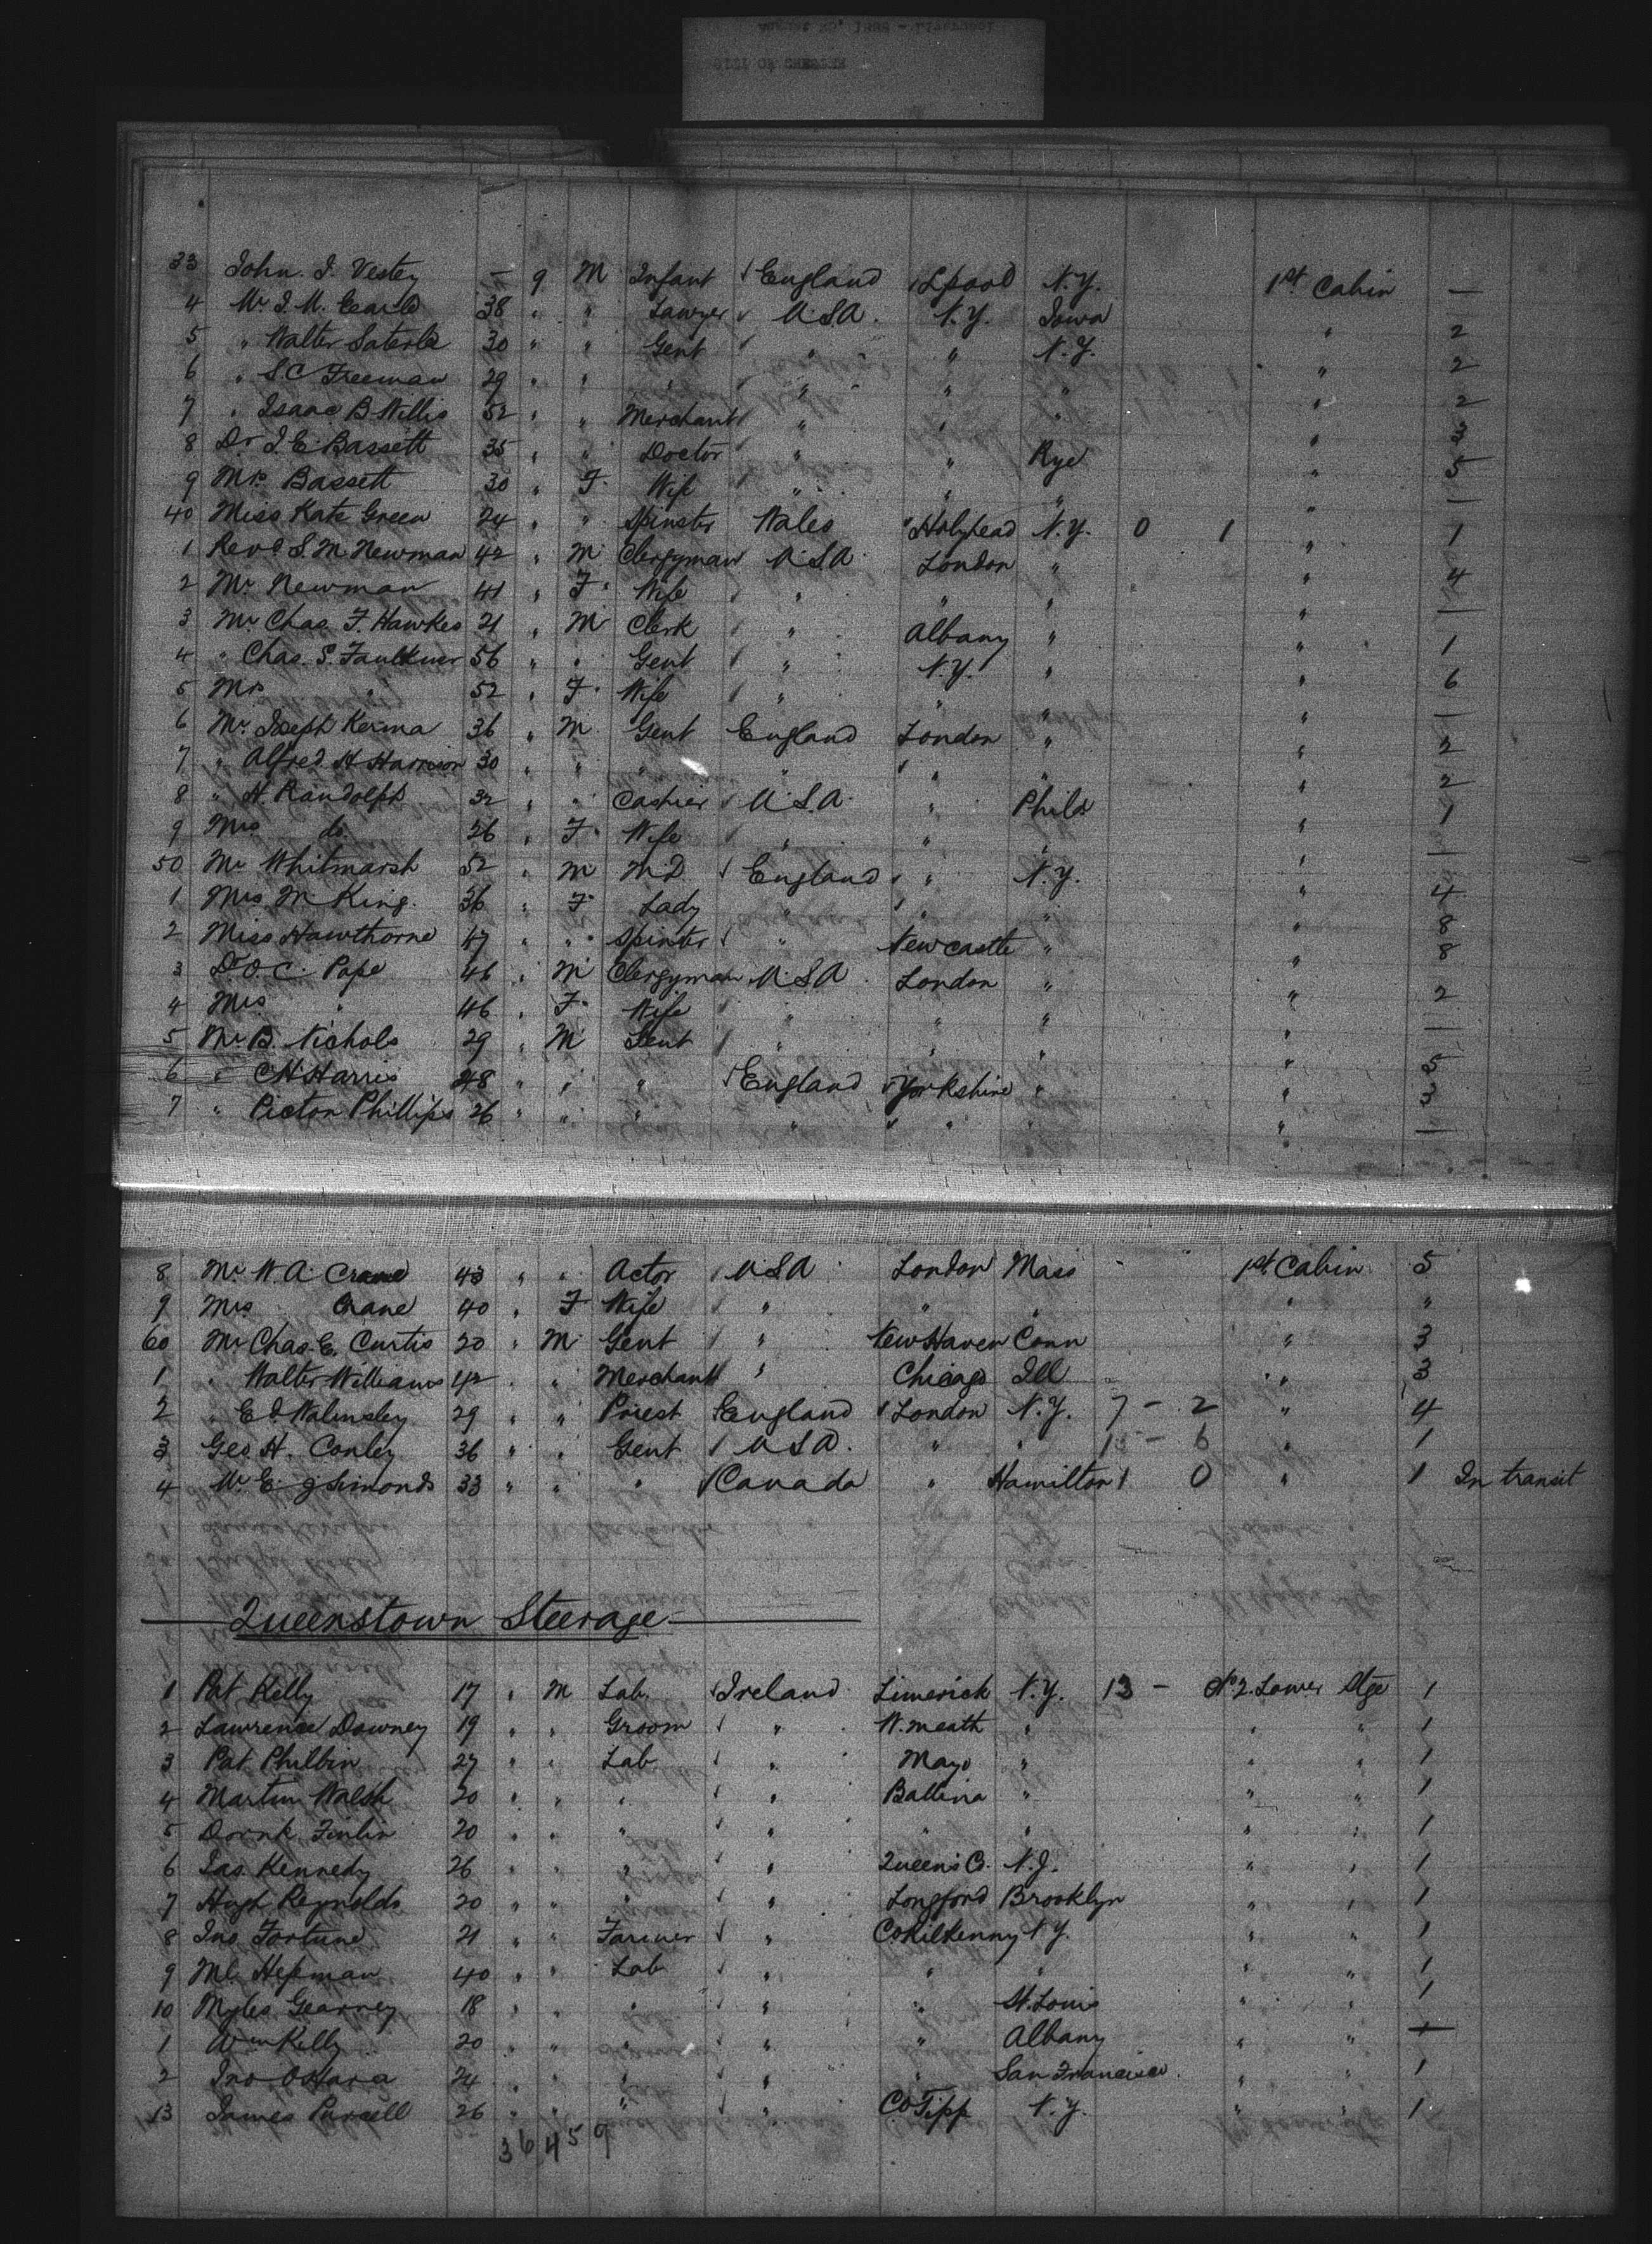 CITY OF CHESTER
33 John. J. Vestey — 9 M Infant England L'pool N.Y. 1st Cabin —
4 Mr J. M. Earle 38 " " Lawyer U.S.A. N.Y. Iowa " 2
5 " Walter 30 " " Gent " " N.Y. " 2
6 " S. C Freeman 29 " " " " " " " 2
7 " Isaac B Willis 52 " " Merchant " " " " 3
8 Dr J. E. Bassett 35 " " Doctor " " Rye " 5
9 Mrs Bassett 30 " F. Wife " " " " —
40 Miss Kate Green 24 " " Spinster Wales Holyhead N.Y. 0 1 " 1
1 Revd S. M. Newman 42 " M Clergyman U.S.A London " " 4
2 Mrs Newman 41 " F. Wife " " " " —
3 Mr Chas. F. Hawkes 21 " M Clerk " Albany " " 1
4 " Chas. S. Faulkner 56 " " Gent " N.Y. " " 6
5 Mrs " 52 " F. Wife " " " " —
6 Mr Joseph Kerma 36 " M Gent England London " " 2
7 " Alfred. H Harrison 30 " " " " " " " 2
8 " H. Randolph 32 " " Cashier U.S.A. " Phila " 1
9 Mrs do. 26 " F. Wife " " " " —
50 Mr Whitmarsh 52 " M M.D. England " N.Y. " 4
1 Mrs. M King. 36 " F Lady " " " " 8
2 Miss Hawthorne 47 " " Spinster " Newcastle " " 8
3 Dr O. C. Pope 46 " M Clergyman U.S.A London " " 2
4 Mrs. " 46 " F. Wife " " " " —
5 Mr B. Nichols 29 " M Gent " " " " 5
6 " C H Harris 48 " " " England Yorkshire " " 3
7 " Picton Phillips 26 " " " " " " " —
8 Mr W. A. Crane 43 " " Actor U.S.A London Mass 1st Cabin 5
9 Mrs Crane 40 " F Wife " " " " "
60 Mr Chas. E. Curtis 20 " M Gent " New Haven Conn " 3
1 " Walter Williams 42 " " Merchant " Chicago Ill " 3
2 " E. J. Walmsley 29 " " Priest England London N.Y. 7 - 2 " 4
3 Geo. H. Conley 36 " " Gent U.S.A. " " - 6 " 1
4 Mr E. J Simonds 33 " " " Canada " Hamilton 1 0 " 1 In transit
Queenstown Steerage
1 Pat Kelly 17 " M Lab. Ireland Limerick N.Y. 13 - No 2. Lower Stge 1
2 Lawrence Downey 19 " " Groom " W. meath " " " 1
3 Pat Philbin 27 " " Lab " Mayo " " " 1
4 Martin Walsh 20 " " " " Ballina " " " 1
5 Domk Finlin 20 " " " " " " " " 1
6 Jas. Kennedy 26 " " " " Queen's Co. N.J. " " 1
7 Hugh Reynolds 20 " " " " Longford Brooklyn " " 1
8 Jno Fortune 21 " " Farmer " Co Kilkenny N.Y. " " 1
9 Ml. Hepman 40 " " Lab " " " " " 1
10 Myles Gearney 18 " " " " " St. Louis " " 1
1 Wm Kelly 20 " " " " " Albany " " 1
2 Jno O'Hara 24 " " " " " San Francisco " " 1
13 James Pursell 26 " " " " Co Tipp N.Y. " " 1
36 45 9